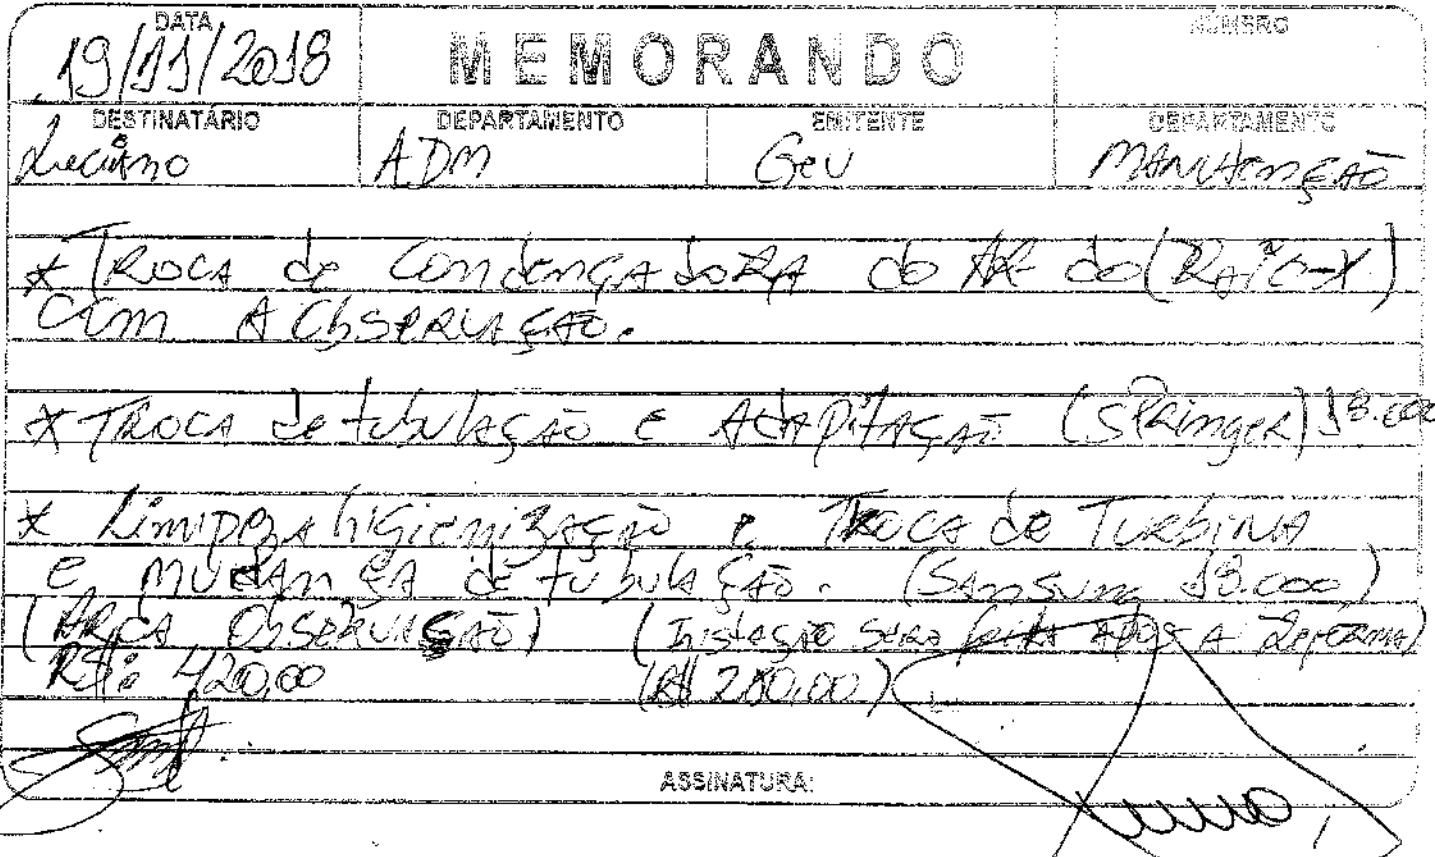 DATA
NÚMERO
19/11/2018
MEMORANDO
DESTINATÁRIO DEPARTAMENTO EMITENTE DEPARTAMENTO
Luciano ADM GeU MANUtenÇÃO
* TROCA de CondençAdoRA do AR do (RAiO-X)
COm A ObSERVAÇÃO.
* TROCA de tubulAÇÃO E AdAPitAÇÃO (SPRinger) 18.000
* Limpeza higienizAÇÃO e TROCA de TuRbinA
e MUdAnÇA de tubulAÇÃO. (SAnSung 18.000)
(ÁREA ObSERVAÇÃO) (InstAÇÃO SERA feitA APOS A REFORMA)
R$: 420,00 (R$ 280,00)
ASSINATURA: